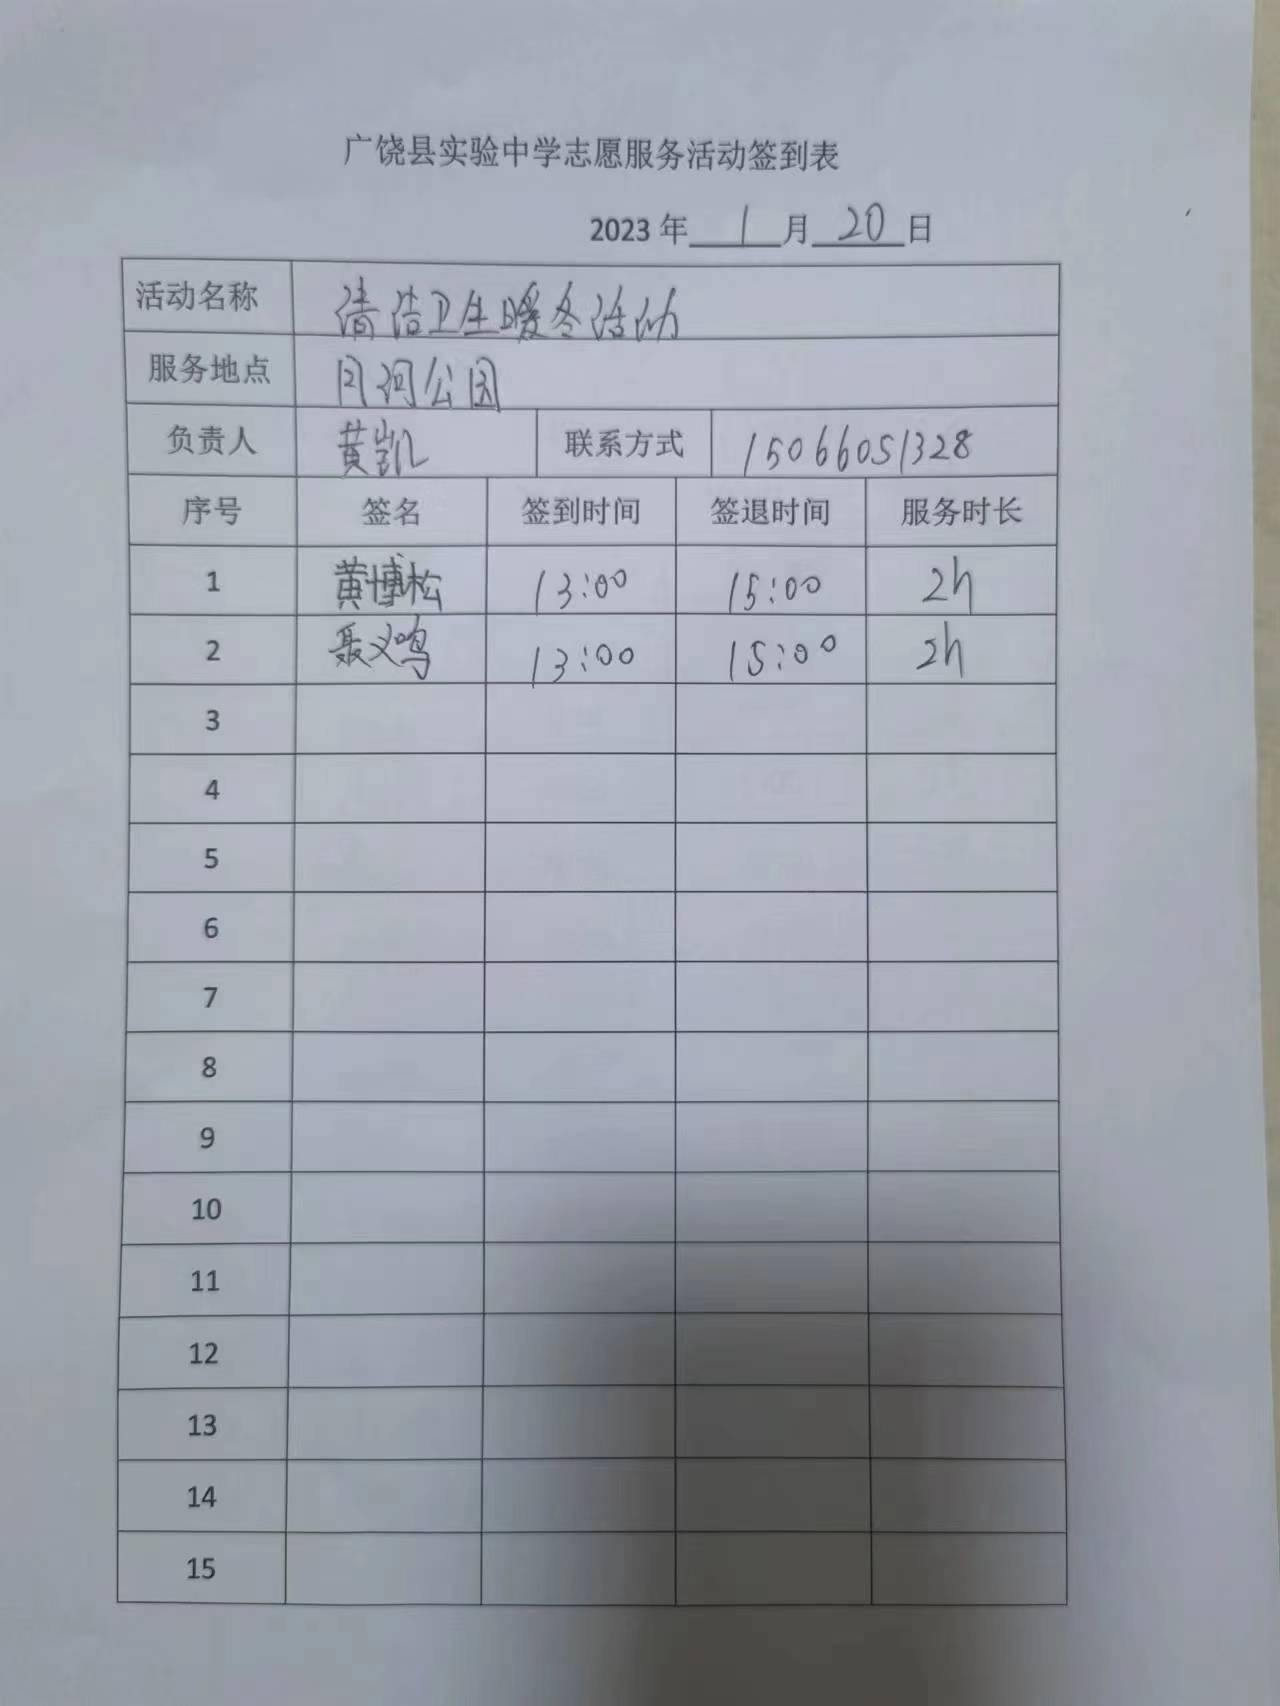 广饶县实验中学志愿服务活动签到表
2023 年 1 月 20 日
活动名称 清洁卫生暖冬活动
服务地点 月河公园
负责人 黄凯 联系方式 15066051328
序号 签名 签到时间 签退时间 服务时长
1 黄博松 13:00 15:00 2h
2 聂义鸣 13:00 15:00 2h
3
4
5
6
7
8
9
10
11
12
13
14
15